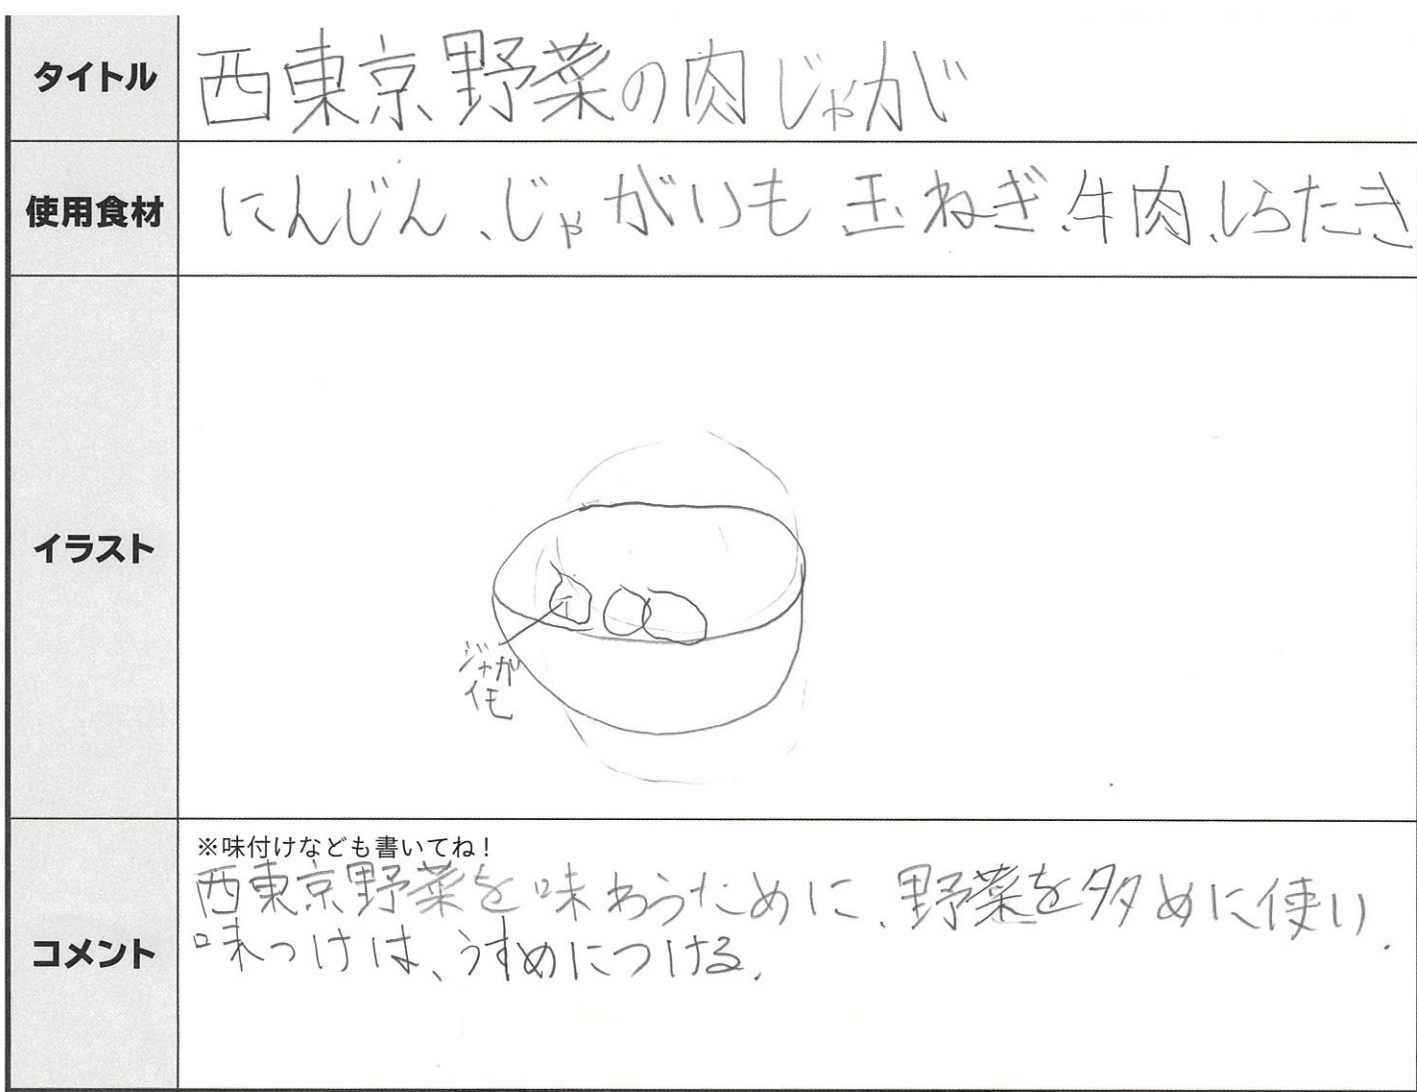 タイトル
西東京野菜の肉じゃが
使用食材
にんじん、じゃがいも 玉ねぎ、牛肉、しらたき
イラスト
ジャガ
イモ
※味付けなども書いてね！
コメント
西東京野菜を味わうために、野菜を多めに使い、
味つけは、うすめにつける。